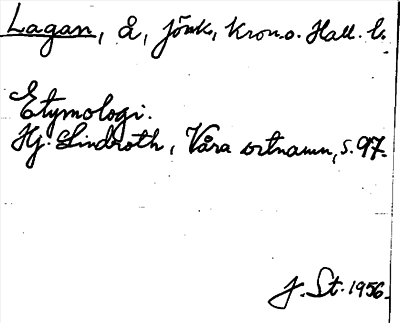 Lagan, å, Jönk, Kron. o. Hall. l.
Etymologi.
Hj. Lindroth, Våra ortnamn, s. 97.
J. St. 1956.